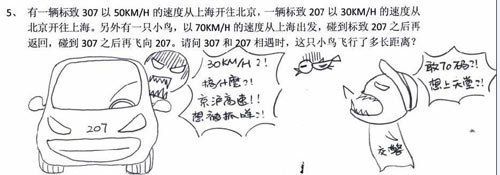 5、 有一辆标致 307 以 50KM/H 的速度从上海开往北京，一辆标致 207 以 30KM/H 的速度从
北京开往上海。另外有一只小鸟，以 70KM/H 的速度从上海出发，碰到标致 207 之后再
返回，碰到 307 之后再飞向 207。请问 307 和 207 相遇时，这只小鸟飞行了多长距离？
30KM/H？！
搞什麼？！
京沪高速！！
想被抓哇？！
敢70码？！
想上天堂？！
207
交警